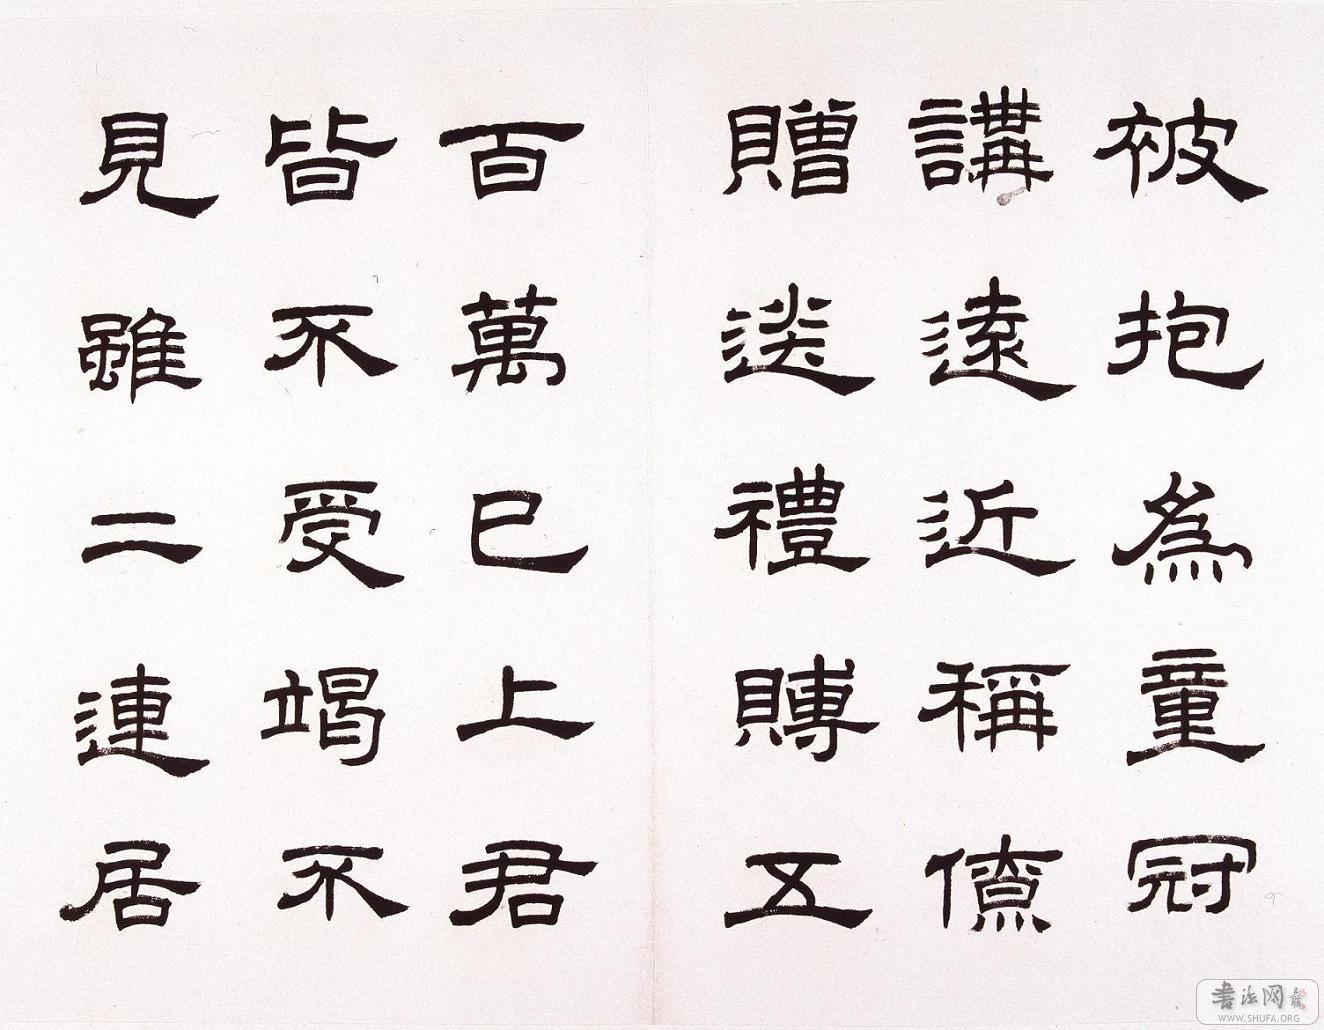 被抱為童冠
講遠近稱僚
贈送禮賻五
百萬已上君
皆不受竭不
見雖二連居
書法网
WWW.SHUFA.ORG